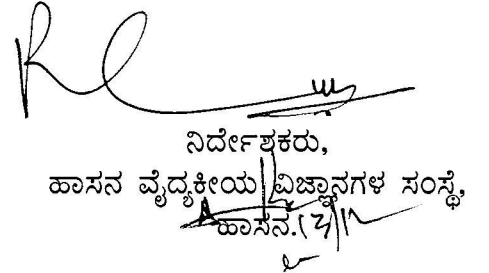 ನಿರ್ದೇಶಕರು,
ಹಾಸನ ವೈದ್ಯಕೀಯ ವಿಜ್ಞಾನಗಳ ಸಂಸ್ಥೆ,
ಹಾಸನ.